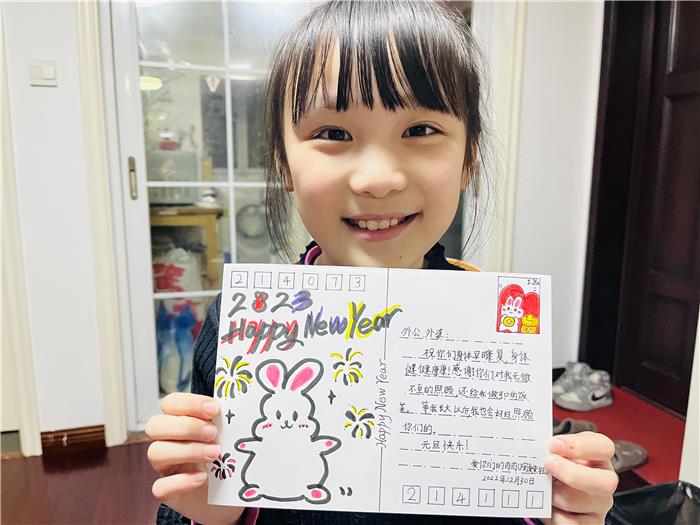 214073
2023
Happy New Year
Happy New Year
外公、外婆：
祝你们身体早日康复，身体
健健康康！感谢你们对我无微
不至的照顾，还给我做可口的饭
菜。等我长大以后我也会好好照顾
你们的。
元旦快乐！
爱你们的肉肉
2022年12月30日
214111